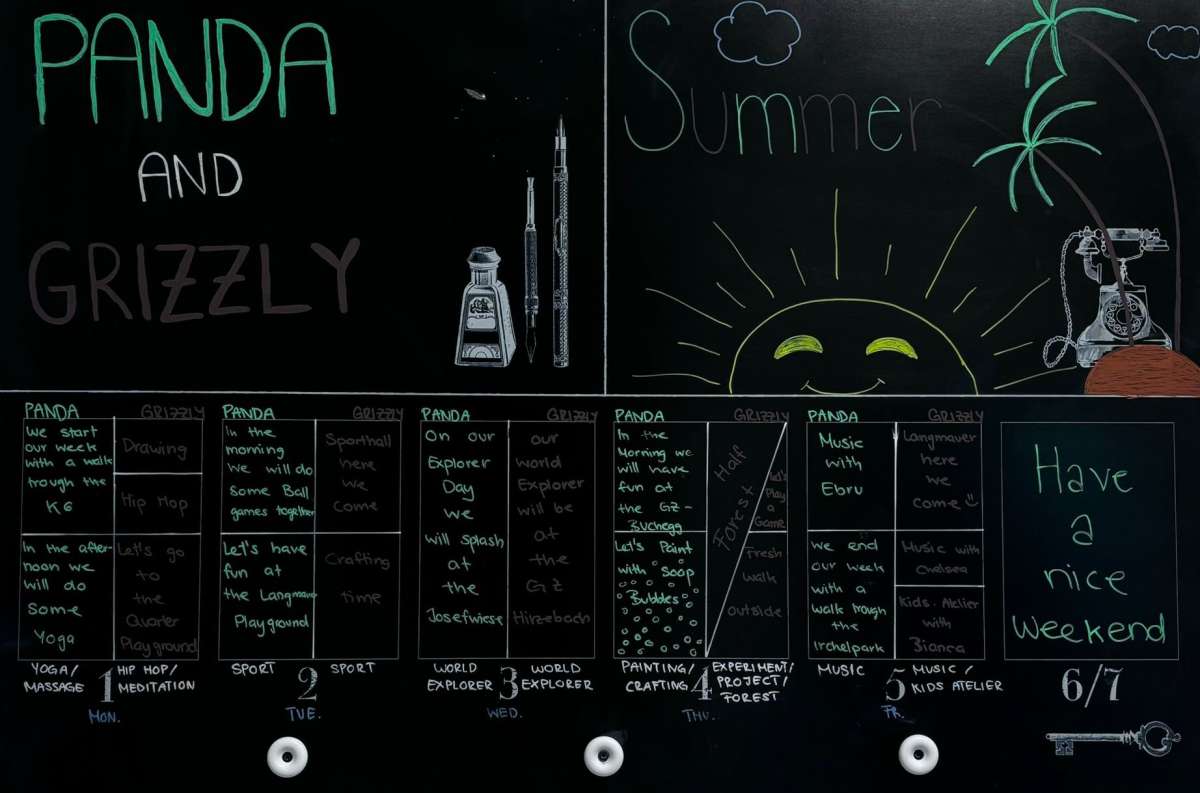 PANDA
AND
GRIZZLY
Summer
PANDA
We start
our week
with a walk
trough the
KG
In the after-
noon we
will do
some
Yoga
GRIZZLY
Drawing
Hip Hop
Let's go
to
the
Quarter
Playground
YOGA/
MASSAGE
1
HIP HOP/
MEDITATION
MON.
PANDA
In the
morning
we will do
some Ball
games together
Let's have
fun at
the Langmauer
Playground
GRIZZLY
Sporthall
here
we
come
Crafting
time
SPORT
2
SPORT
TUE.
PANDA
On our
Explorer
Day
we
will splash
at
the
Josefwiese
GRIZZLY
our
world
Explorer
will be
at
the
GZ
Hirzebach
WORLD
EXPLORER
3
WORLD
EXPLORER
WED.
PANDA
In the
Morning we
will have
fun at
the GZ-
Buchegg
Let's Paint
with Soap
Bubbles
GRIZZLY
Half
Forest
Let's
Play
a
Game
Fresh
walk
outside
PAINTING/
CRAFTING
4
EXPERIMENT/
PROJECT/
FOREST
THU.
PANDA
Music
with
Ebru
we end
our week
with a
walk trough
the
Irchelpark
GRIZZLY
Langmauer
here
we
come
Music with
Chelsea
Kids-Atelier
with
Bianca
MUSIC
5
MUSIC /
KIDS ATELIER
FR.
Have
a
nice
weekend
6/7